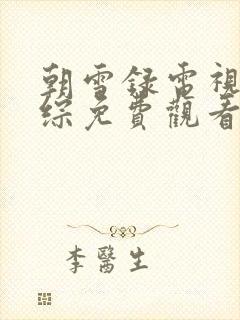 朝雪錄電視
綜免費觀看
李醫生